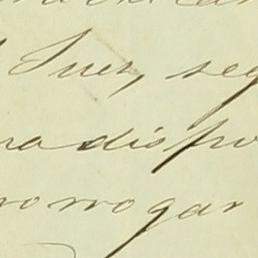 Juez, seg
ra dispo
rorrogar